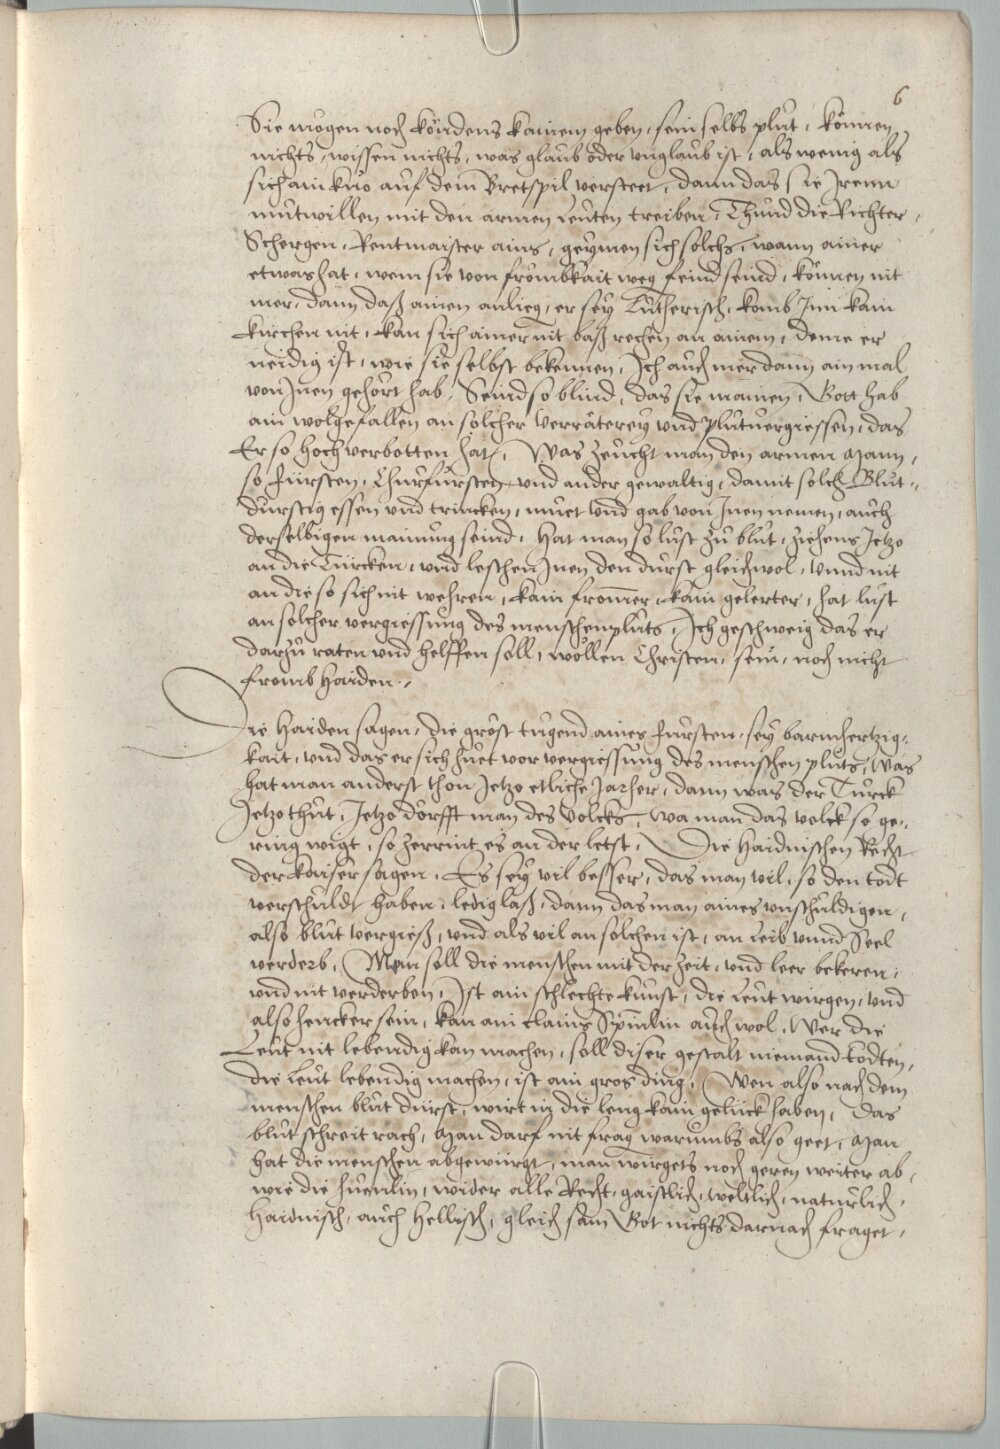 6
Sie mögen noch köndens kainem geben, sein selbs plůt, können
nichts, wissen nichts, was glaub oder unglaub ist, als wenig als
sich ain kuo auf dem Bretspil versteet, dann das sie Jrenn
mutwillen mit den armen Leuten treiben. Thund die Richter,
Schergen, Rentmaister ains, gezymen sich solchs, wann ainer
etwas hat, wem sie von frombkait weg feind seind, können nit
mer, dann daß ainen anlieg, er sey Lutherisch, komb Jnn kain
kirchen nit, kan sich ainer nit baß rechen an ainem, deme er
neidig ist, wie sie selbst bekennen, Jch auch mer dann ain mal
von Jnen gehört hab. Seind so blind, das sie mainen, Gott hab
ain wolgefallen an solcher verräterey und plutvergiessen, das
Er so hoch verbotten hat. Was zeucht man den armen Mann,
so Fürsten, Churfürsten und ander gewaltig, damit solch Blut-
durstig essen und trincken, muet und gab von Jnen nemen, auch
derselbigen mainung seind. Hat man so lust zu blut, ziehens Jetzo
an die Türcken, und leschen Jnen den durst gleichwol, unnd nit
an die so sich nit wehren, kain fromer, kain gelerter, hat lust
an solcher vergiessung des menschenpluts, Jch geschweig das er
darzu raten und helffen soll, wöllen Christen sein, noch nicht
fromb Haiden.
Die Haiden sagen, die gröst tugend aines Fürsten, sey barmhertzig-
kait, und das er sich huet vor vergiessung des menschen pluts, Was
hat man anderst thon Jetzo etliche Jar her, dann was der Türck
Jetzo thut, Jetzo dörfft man des Volcks, Wa man das volck so ge-
ring wigt, so zerrint es an der letst. Die Haidnischen Recht
der Kaiser sagen, Es sey vil besser, das man vil, so den todt
verschuldt haben, ledig laß, dann das man aines unschuldigen,
also blut vergieß, und als vil an solchen ist, an leib unnd Seel
verderb. Man soll die menschen mit der zeit, und leer bekeren,
und nit verderben, Jst ain schlechte kunst, die Leut wirgen, und
also hencker sein, kan ain clains Spinlin auch wol, Wer die
Leut nit lebendig kan machen, soll diser gestalt niemand todten,
die Leut lebendig machen, ist ain gros ding. Wen also nach dem
menschen blut dürst, wirt in die leng kain gelück haben, das
blut schreit rach, Man darf nit frag warumbs also geet, Man
hat die menschen abgewürgt, man würgets noch geren weiter ab,
wie die huenlin, wider alle Recht, gaistlich, weltlich, natürlich,
Haidnisch, auch Hellisch, gleich sam Got nichts darnach fraget,